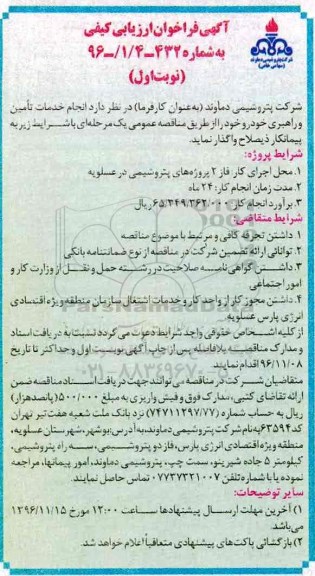 آگهی فراخوان ارزیابی کیفی
به شماره ۴۳۲-۴-/۱/-۹۶
(نوبت اول)
شرکت پتروشیمی دماوند
(سهامی خاص)
شرکت پتروشیمی دماوند (به عنوان کارفرما) در نظر دارد انجام خدمات تأمین
و راهبری خودرو خود را از طریق مناقصه عمومی یک مرحله‌ای با شرایط زیر به
پیمانکار ذیصلاح واگذار نماید.
شرایط پروژه:
۱. محل اجرای کار فاز ۲ پروژه‌های پتروشیمی در عسلویه
۲. مدت زمان انجام کار: ۲۴ ماه
۳. برآورد انجام کار: ۶۵/۳۴۹/۳۶۲/۰۰۰ ریال
شرایط متقاضی:
۱. داشتن تجربه کافی و مرتبط با موضوع مناقصه
۲. توانائی ارائه تضمین شرکت در مناقصه از نوع ضمانتنامه بانکی
۳. داشتن گواهی نامه صلاحیت در رشته حمل و نقل از وزارت کار و
امور اجتماعی
۴. داشتن مجوز کار از واحد کار و خدمات اشتغال سازمان منطقه ویژه اقتصادی
انرژی پارس عسلویه
از کلیه اشخاص حقوقی واجد شرایط دعوت می گردد نسبت به دریافت اسناد
و مدارک مناقصه بلافاصله پس از چاپ آگهی نوبت اول و حداکثر تا تاریخ
۹۶/۱۱/۰۸ اقدام نمایند.
متقاضیان شرکت در مناقصه می توانند جهت دریافت اسناد مناقصه ضمن
ارائه تقاضای کتبی، مدارک فوق و فیش واریزی به مبلغ ۵۰۰/۰۰۰ (پانصدهزار)
ریال به حساب شماره (۷۴۷۱۱۲۹۷/۷۷) نزد بانک ملت شعبه هفت تیر تهران
کد ۶۳۵۹۴ به نام شرکت پتروشیمی دماوند، به آدرس: بوشهر، شهرستان عسلویه،
منطقه ویژه اقتصادی انرژی پارس، فاز دو پتروشیمی، سه راه پتروشیمی،
کیلومتر ۵ جاده شیرینو، سمت چپ، پتروشیمی دماوند، امور پیمانها، مراجعه
نموده یا با شماره تلفن ۰۷۷۳۷۳۲۱۰۰۷ تماس حاصل نمایند.
سایر توضیحات:
۱) آخرین مهلت ارسال پیشنهادها ساعت ۱۲:۰۰ مورخ ۱۳۹۶/۱۱/۱۵
می‌باشد.
۲) بازگشائی پاکت‌های پیشنهادی متعاقباً اعلام خواهد شد.